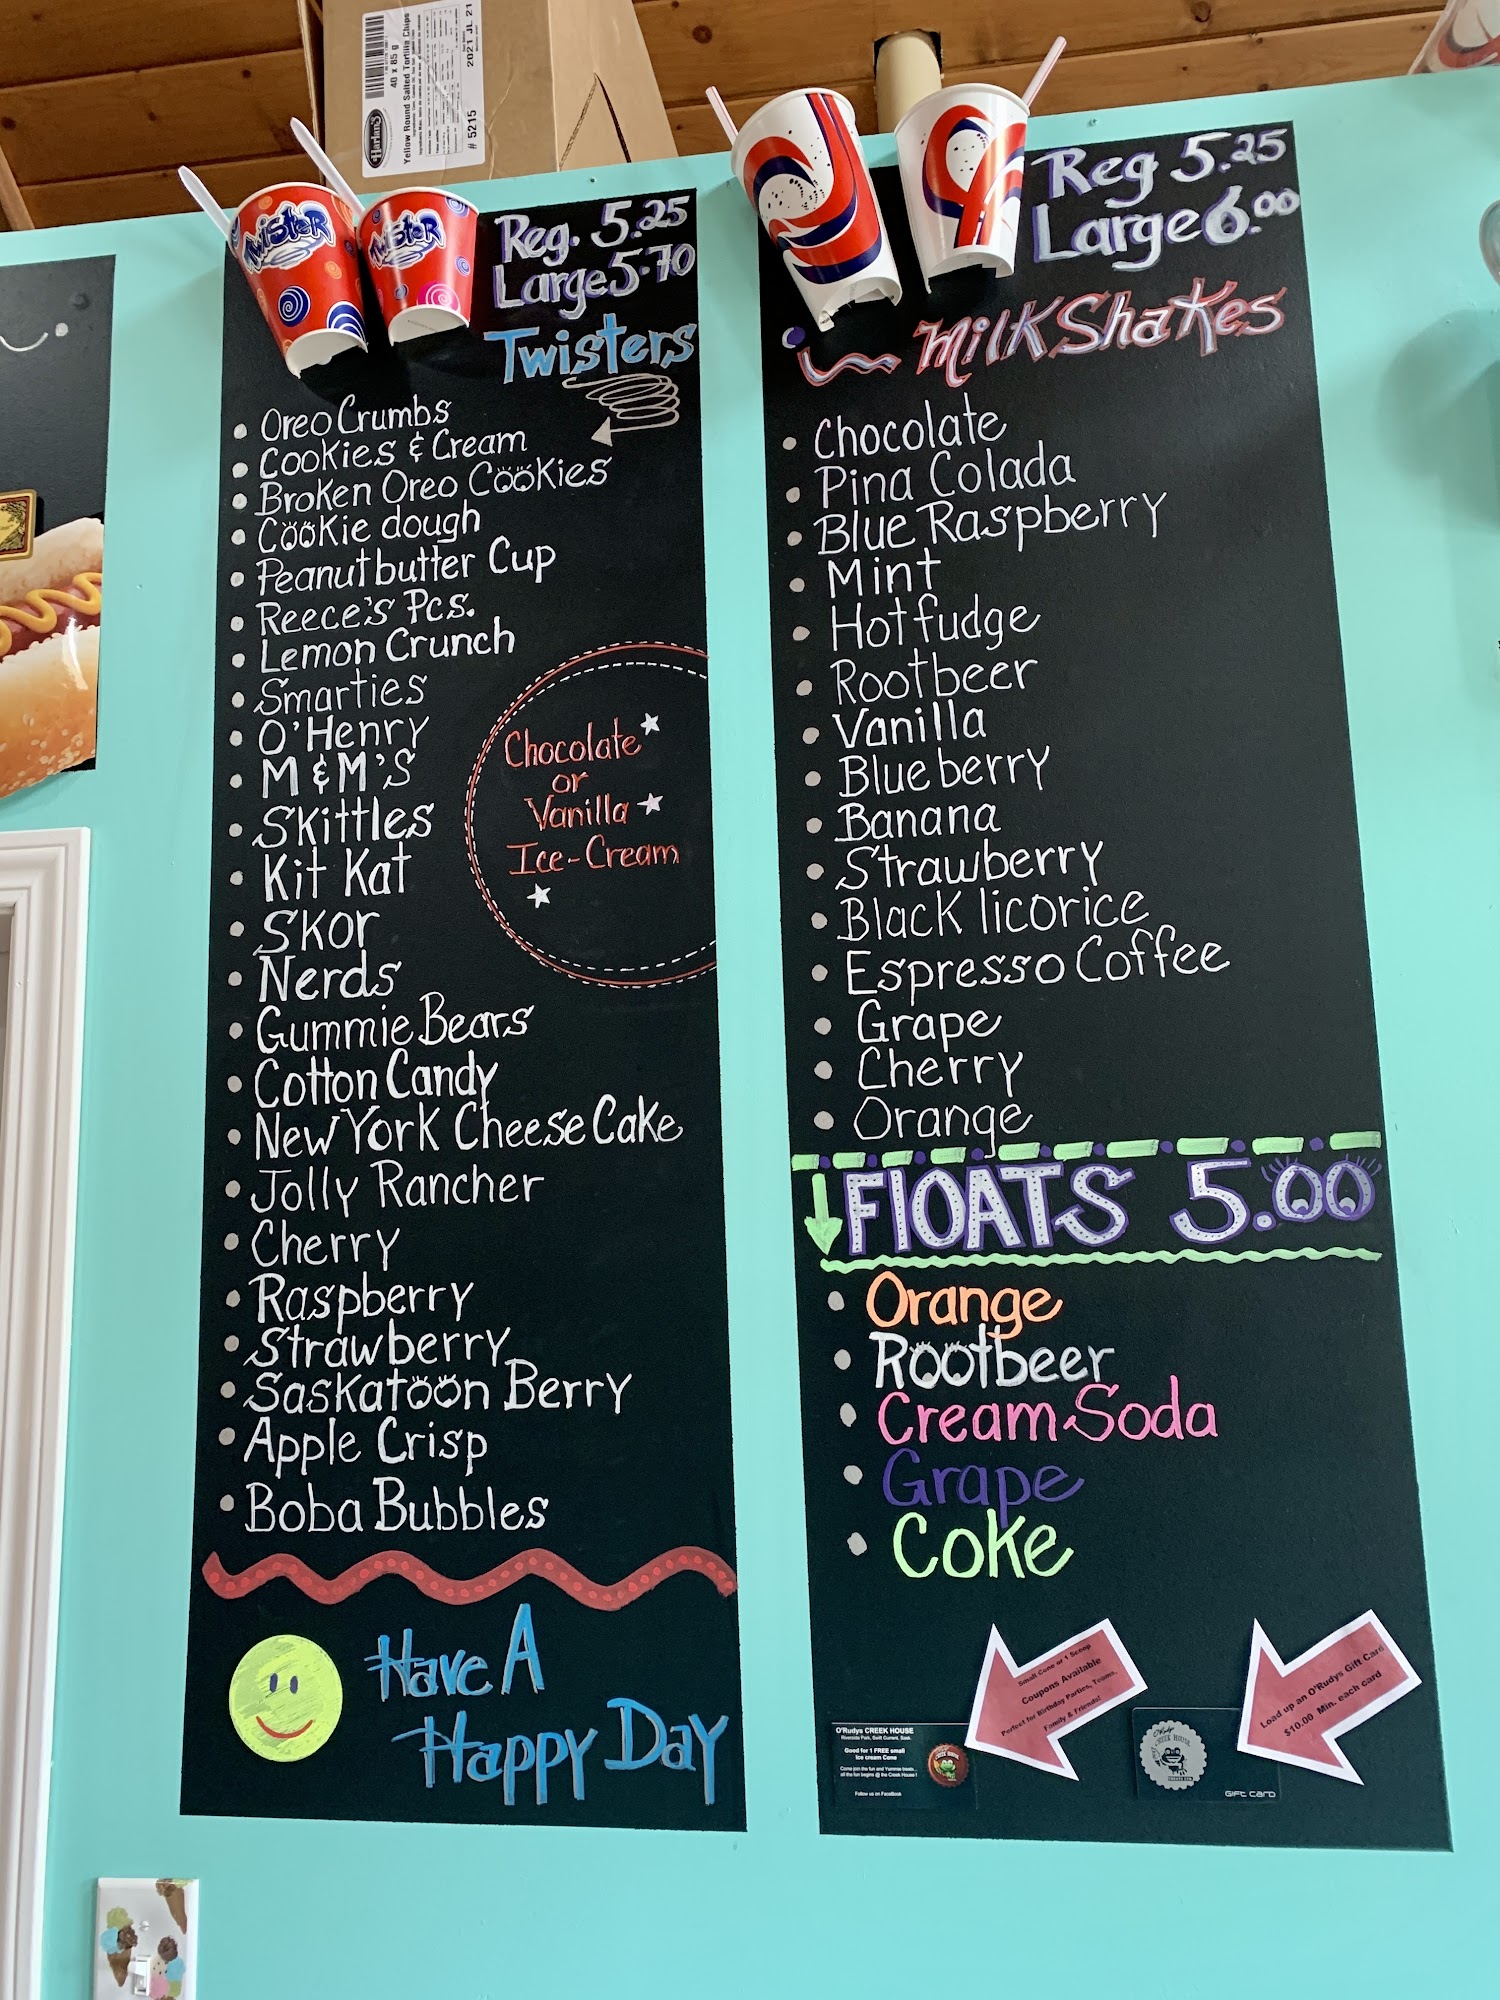 Harlan's
Yellow Round Salted Tortilla Chips
40 x 85 g
2021 JL 21
# 5215
Twister
Twister
Reg. 5.25
Large 5.70
Twisters
Oreo Crumbs
Cookies & Cream
Broken Oreo Cookies
Cookie dough
Peanutbutter Cup
Reece's Pcs.
Lemon Crunch
Smarties
O'Henry
M & M's
Skittles
Kit Kat
Skor
Nerds
Gummie Bears
Cotton Candy
New York Cheese Cake
Jolly Rancher
Cherry
Raspberry
Strawberry
Saskatoon Berry
Apple Crisp
Boba Bubbles
Chocolate
or
Vanilla
Ice-Cream
Have A
Happy Day
Reg 5.25
Large 6.00
MilkShakes
Chocolate
Pina Colada
Blue Raspberry
Mint
Hot fudge
Rootbeer
Vanilla
Blueberry
Banana
Strawberry
Black licorice
Espresso Coffee
Grape
Cherry
Orange
Floats 5.00
Orange
Rootbeer
Cream Soda
Grape
Coke
Small Cone or 1 Scoop
Coupons Available
Perfect for Birthday Parties, Teams,
Family & Friends!
O'Rudys CREEK HOUSE
Riverside Park, Swift Current, Sask.
Good for 1 FREE small
Ice cream Cone
Come join the fun and Yummie treats..
all the fun begins @ the Creek House !
Follow us on FaceBook
Load up an O'Rudys Gift Card
$10.00 Min. each card
CREEK HOUSE
GIFT CARD